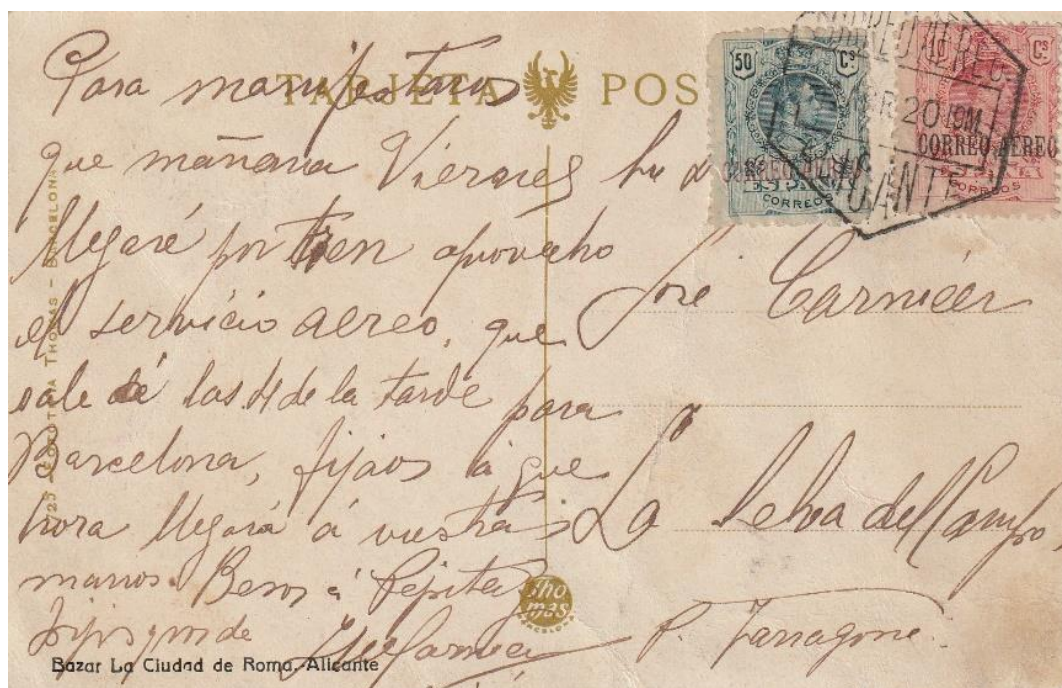 TARJETA POS
Para manifestaros
que mañana Viernes
llegaré por tren aprovecho
el servicio aereo, que
sale de las 4 de la tarde para
Barcelona, fijaos á que
hora llegará á vuestras
manos. Besos á Pepita
50 Cs
CORREO AEREO
ESPAÑA
CORREOS
10 Cs
CORREO AEREO
ESPAÑA
CORREOS
CORREO AEREO
20
ALICANTE
José Carnicér
La Selva del Campo
P. Tarragona.
FOTOTIPIA THOMAS - BARCELONA
Thomas
Bazar La Ciudad de Roma.-Alicante